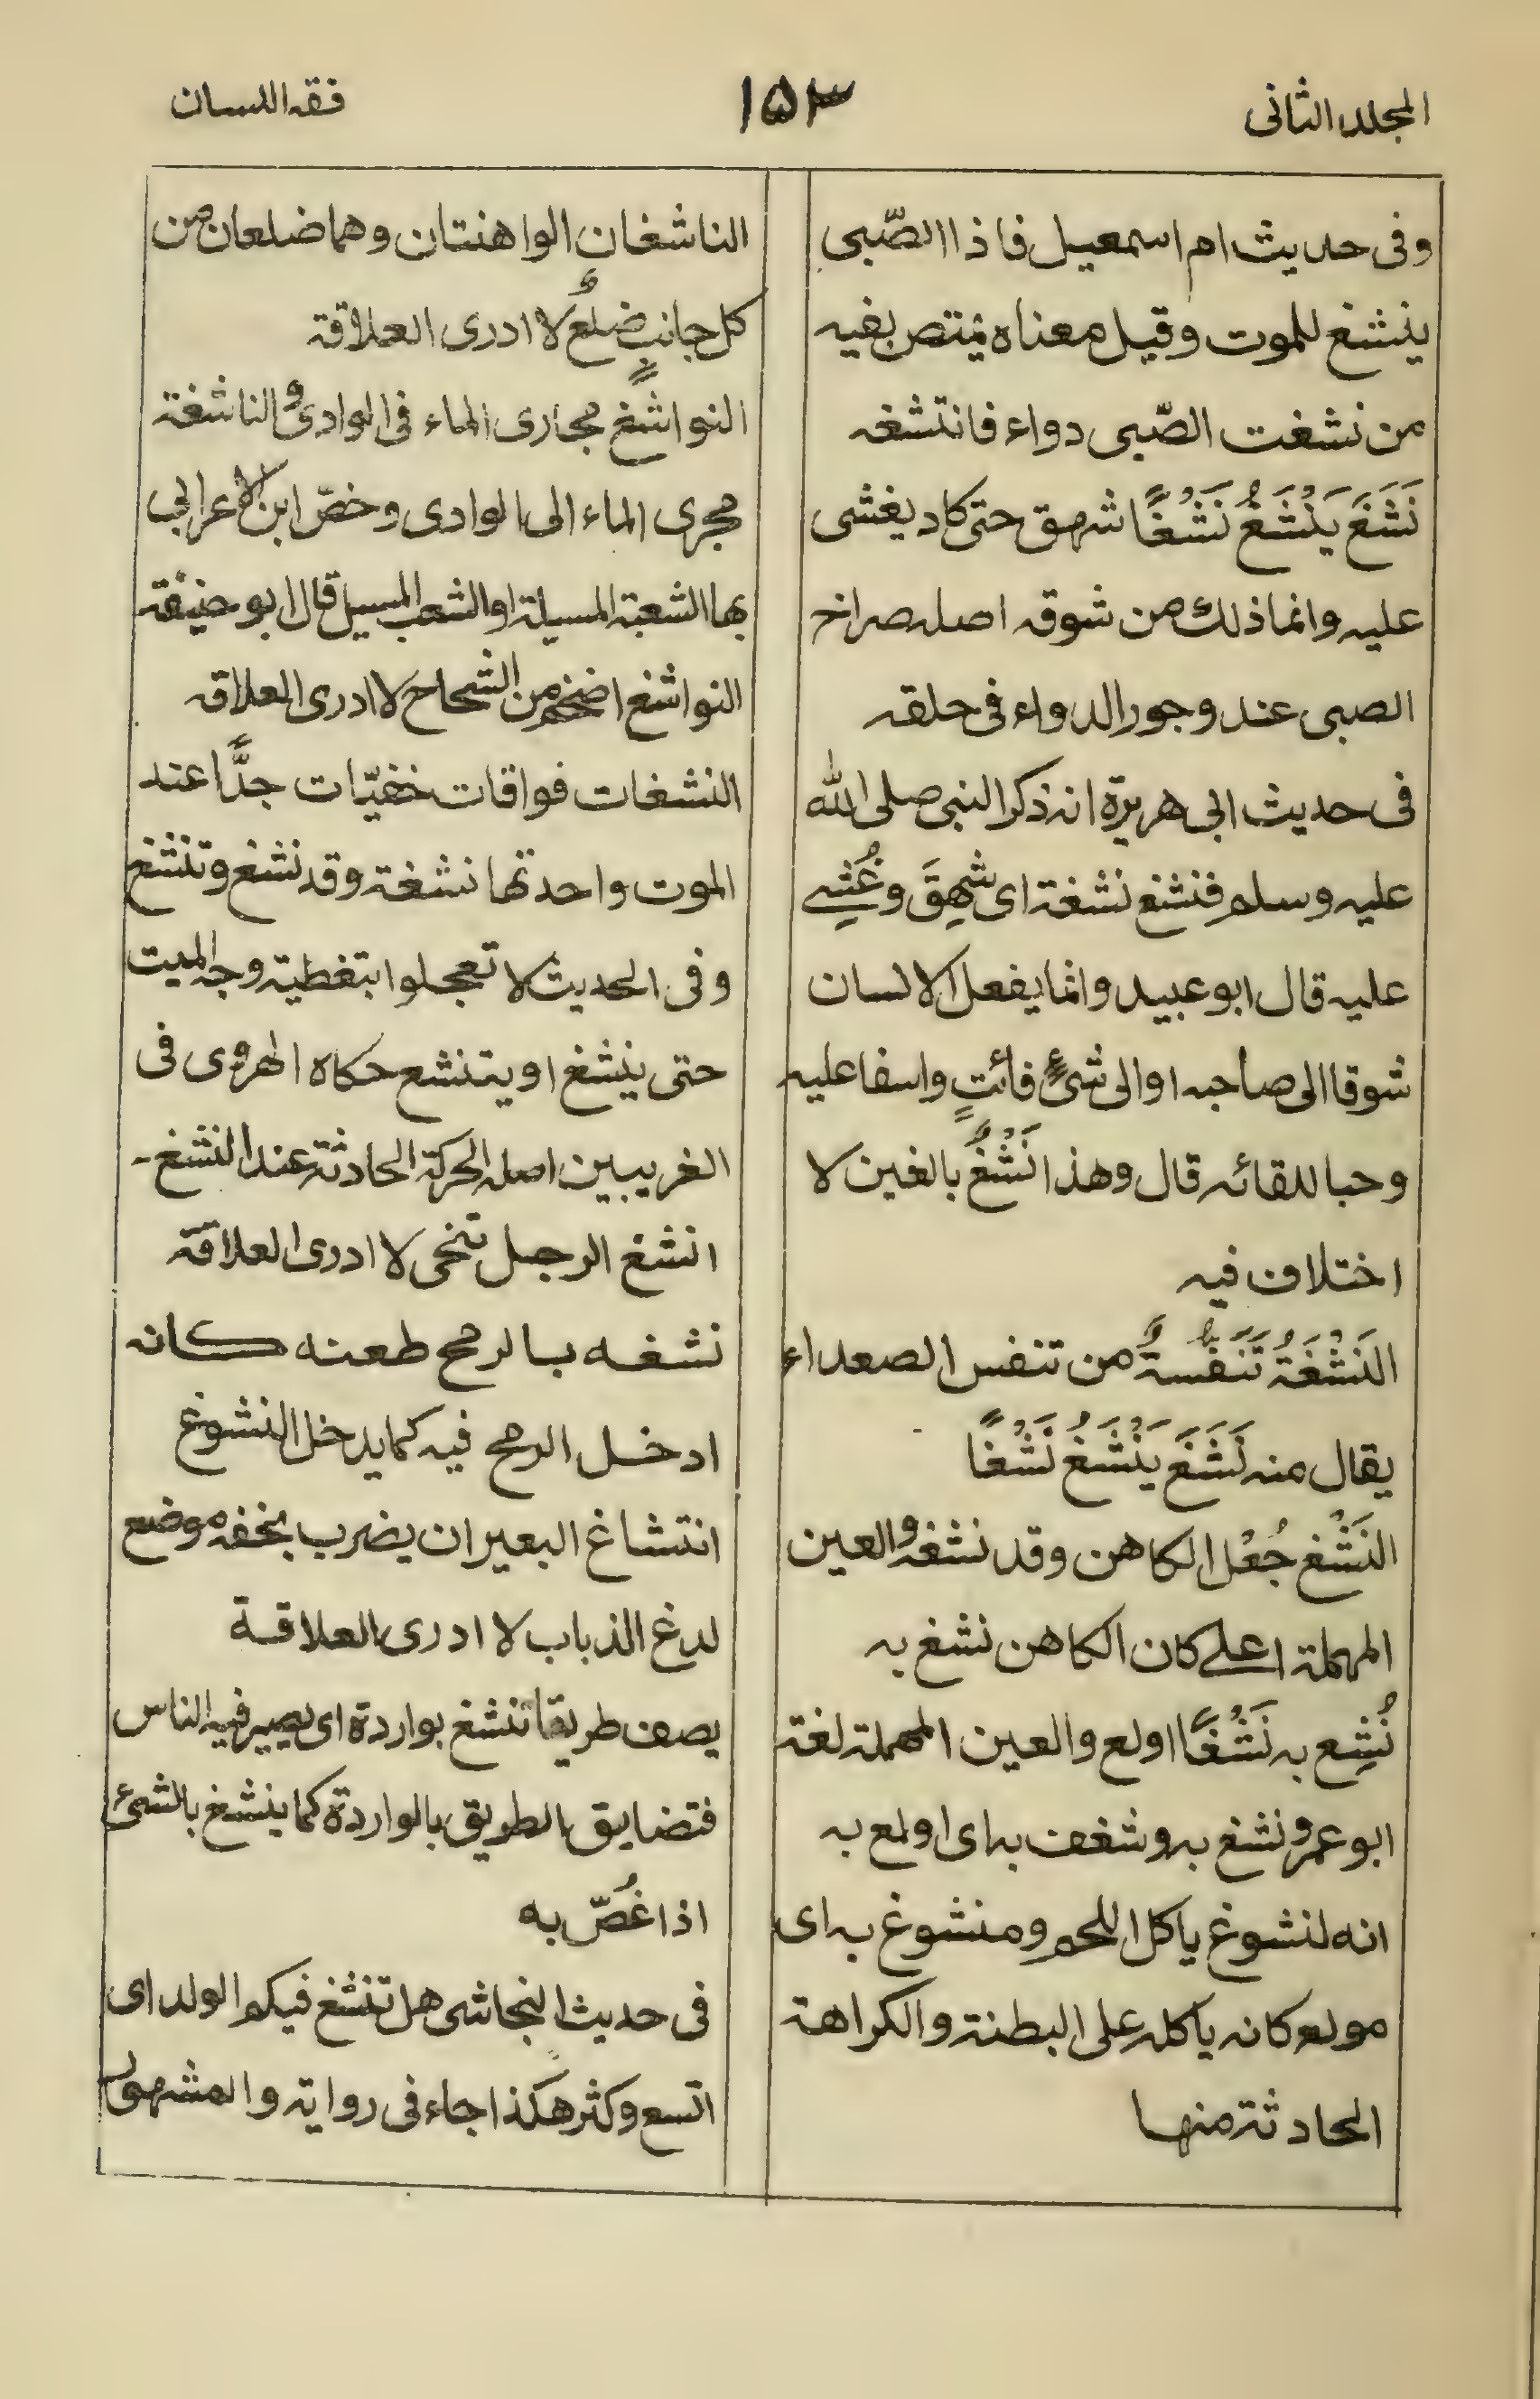 المجلد الثانى
١٥٣
فقه اللسان
وفى حديث ام اسمعيل فاذا الصّبى
ينشغ للموت وقيل معناه يمتص بفيه
من نشغت الصّبى دواء فانتشغه
نَشَغَ يَنْشَغُ نَشْغًا شهق حتى كاد يغشى
عليه وانما ذلك من شوقه اصله صراخ
الصبى عند وجور الدواء فى حلقه
فى حديث ابى هريرة انه ذكر النبى صلى الله
عليه وسلم فنشغ نشغة اى شَهِقَ وغُشِى
عليه قال ابو عبيد وانما يفعل الانسان
شوقا الى صاحبه او الى شئٍ فائتٍ واسفا عليه
وحبا للقائه قال وهذا نَشْغٌ بالغين لا
اختلاف فيه
النَشْغَةُ تَنَفُّسَةٌ من تنفس الصعداء
يقال منه نَشَغَ يَنْشَغُ نَشْغًا
النَشْغ جُعْل الكاهن وقد نشغه والعين
المهملة اعلى كان الكاهن نشغ به
نُشِع به نَشْغًا اولع والعين المهملة لغة
ابو عمرو نشغ به وشغف به اى اولع به
انه لنشوغ ياكل اللحم ومنشوغ به اى
مولع كانه ياكله على البطنة والكراهة
الحادثة منها
الناشغان الواهنتان وهما ضلعان من
كل جانبٍ ضلعٌ لا ادرى العلاقة
النواشغ مجارى الماء فى الوادى والناشغة
مجرى الماء الى الوادى وخصّ ابن الاعرابى
بها الشعبة المسيلة او الشعب المسيل قال ابو حنيفة
النواشغ اضخم من الشحاح لا ادرى العلاقه
النشغات فواقات خفيّات جدًّا عند
الموت واحدتها نشغة وقد نشغ وتنشغ
وفى الحديث لا تعجلوا بتغطية وجه الميت
حتى ينشغ او يتنشع حكاه الهروى فى
الغريبين اصله الحركة الحادثة عند النشغ -
انشغ الرجل تنحى لا ادرى العلاقة
نشغه بالرمح طعنه كانه
ادخل الرمح فيه كما يدخل النشوغ
انتشاغ البعير ان يضرب بخفه موضع
لدغ الذباب لا ادرى العلاقة
يصف طريقا تنشغ بواردة اى يصير فيه الناس
فتضايق الطريق بالواردة كما ينشغ بالشئ
اذا غُصّ به
فى حديث النجاشى هل تنشغ فيكم الولد اى
اتسع وكثر هكذا جاء فى رواية والمشهور